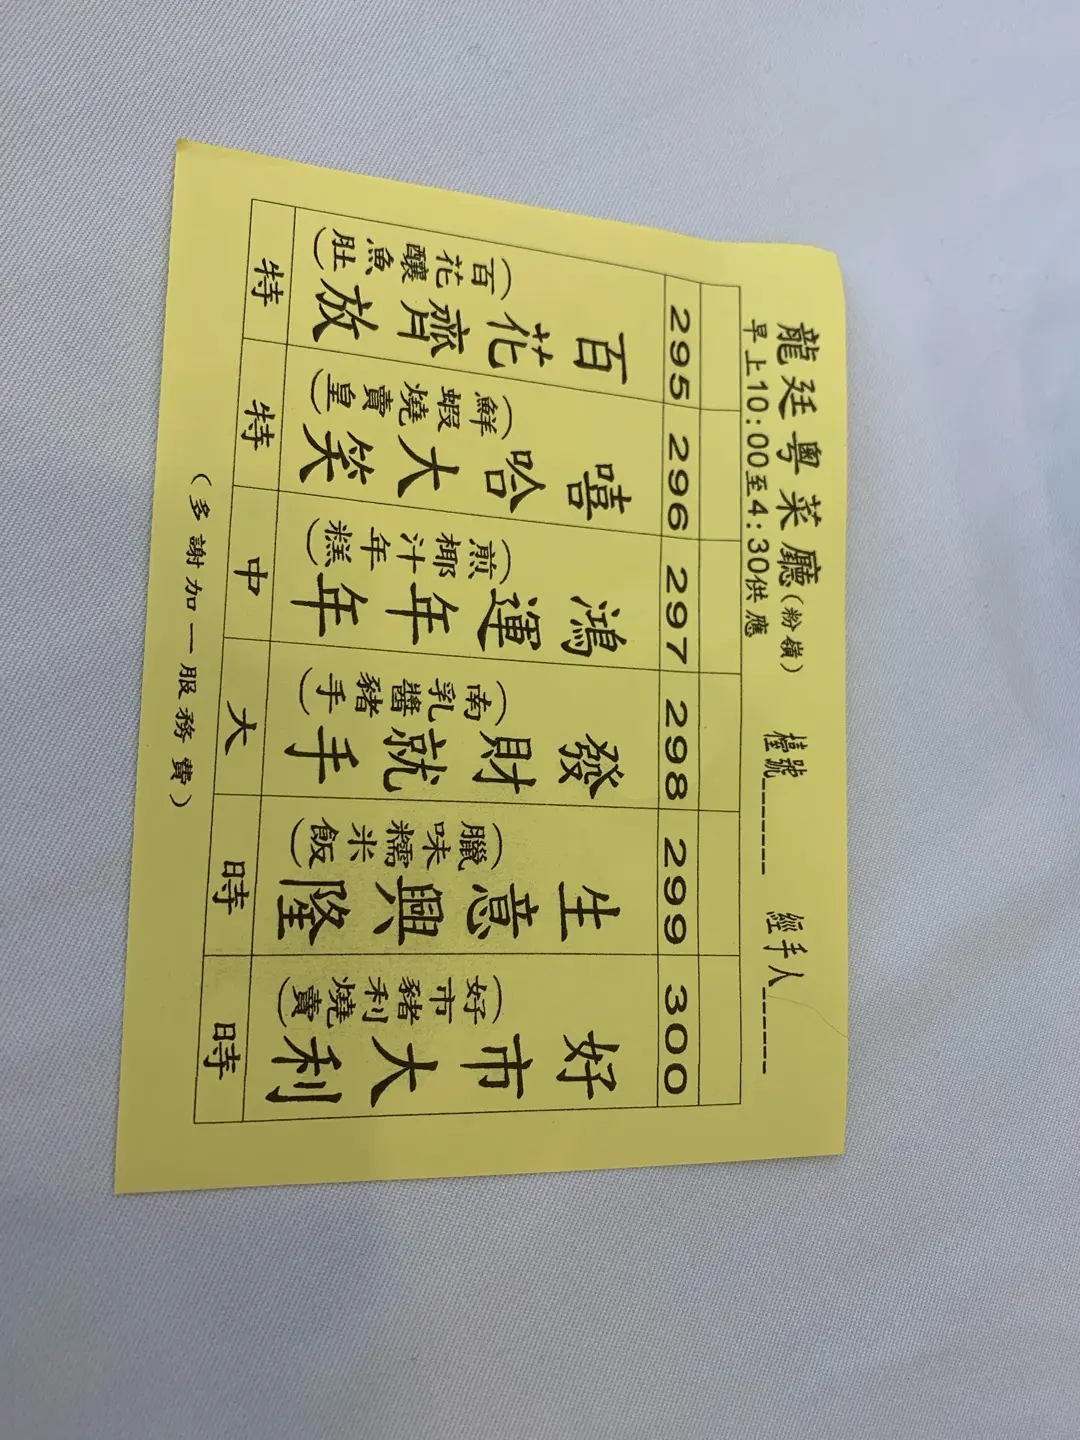 龍廷粵菜廳(粉嶺)
檯號_______
經手人______
早上10:00至4:30供應
295
百花齊放
(百花釀魚肚)
特
296
嘻哈大笑
(鮮蝦燒賣皇)
特
297
鴻運年年
(煎椰汁年糕)
中
298
發財就手
(南乳醬豬手)
大
299
生意興隆
(臘味糯米飯)
時
300
好市大利
(好市豬利燒賣)
時
(多謝加一服務費)